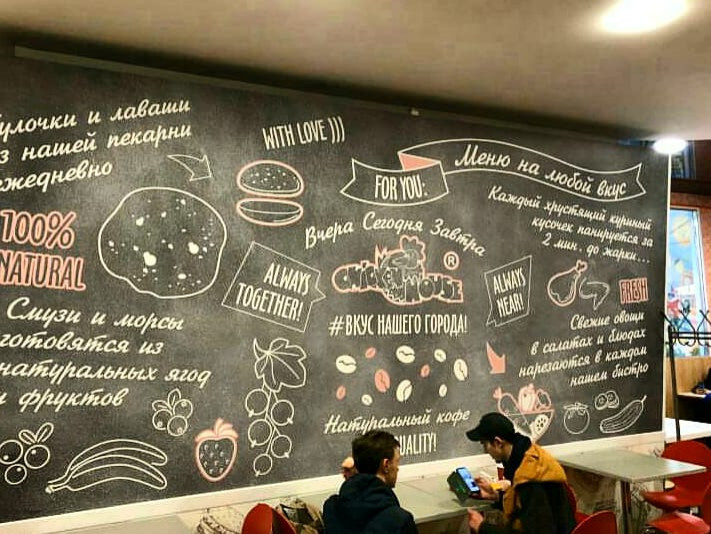 улочки и лаваши
з нашей пекарни
жедневно
100%
NATURAL
Смузи и морсы
готовятся из
натуральных ягод
и фруктов
WITH LOVE )))
ALWAYS
TOGETHER!
FOR YOU:
Меню на любой вкус
Вчера Сегодня Завтра
CHICKEN HOUSE ®
#ВКУС НАШЕГО ГОРОДА!
Натуральный кофе
QUALITY!
ALWAYS
NEAR!
Каждый хрустящий куриный
кусочек панируется за
2 мин. до жарки...
FRESH
Свежие овощи
в салатах и блюдах
нарезаются в каждом
нашем бистро